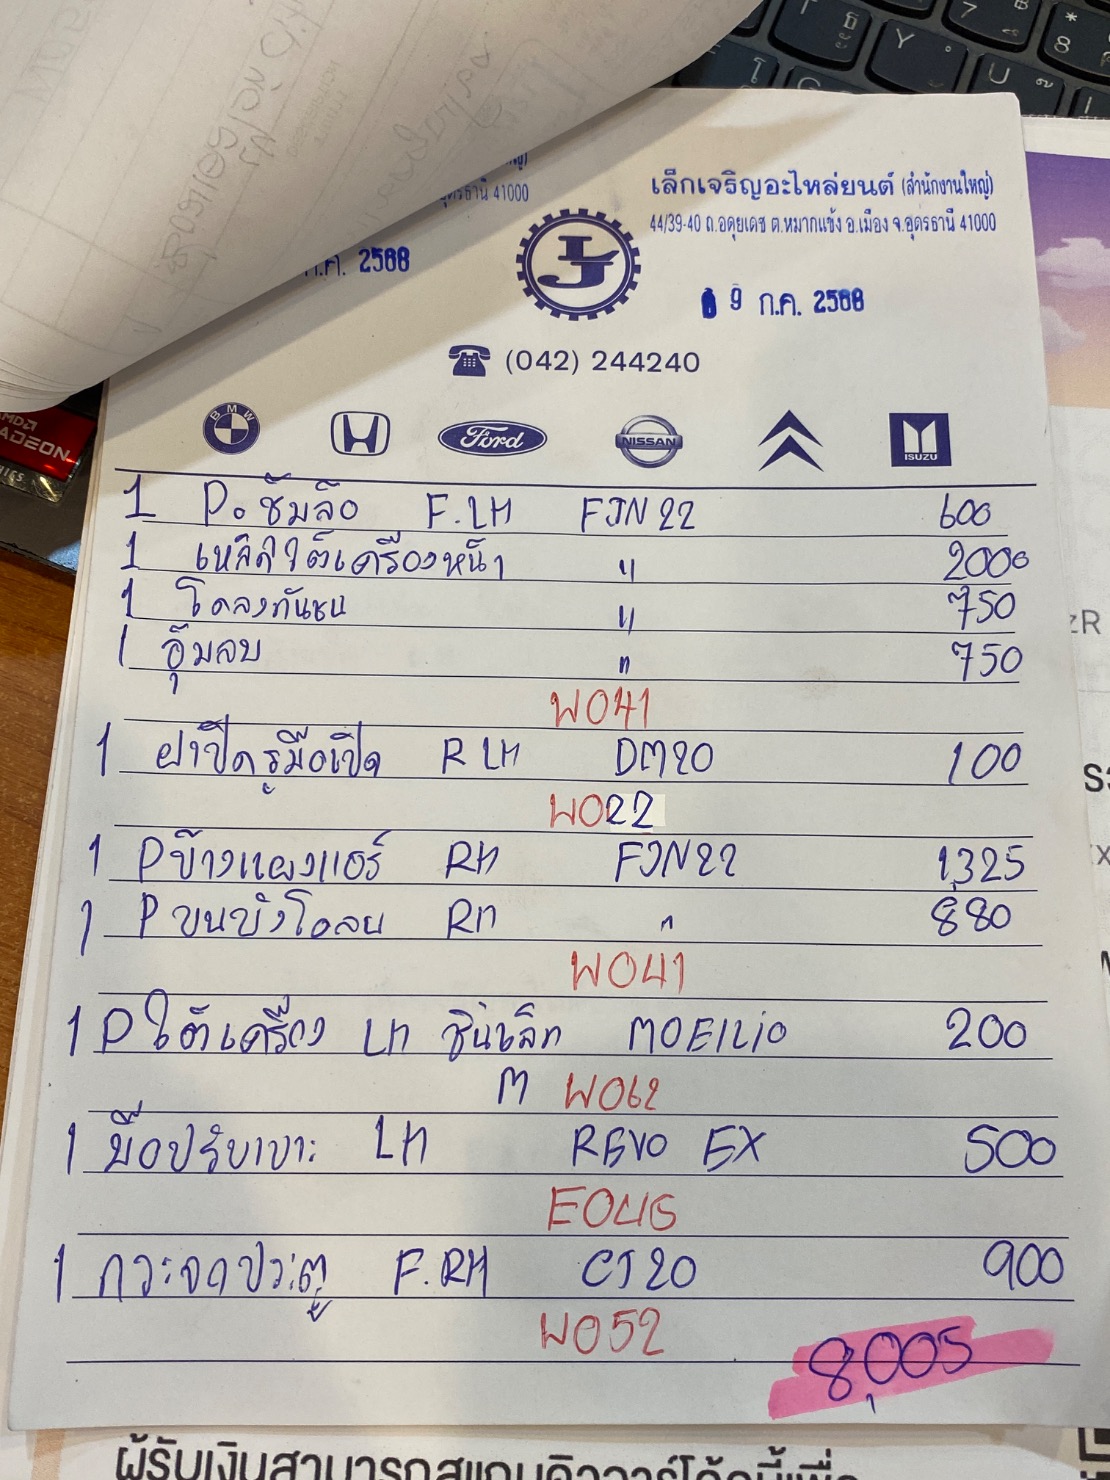 เล็กเจริญอะไหล่ยนต์ (สำนักงานใหญ่)
44/39-40 ถ.อดุยเดช ต.หมากแข้ง อ.เมือง จ.อุดรธานี 41000
อุดรธานี 41000
ก.ค. 2568
9 ก.ค. 2568
(042) 244240
BMW
Ford
NISSAN
ISUZU
1 P. ซุ้มล้อ F.LH FJN22 600
1 เหล็กใต้เครื่องหน้า " 2000
1 โครงกันชน " 750
1 อุ้มลบ " 750
WO41
1 ฝาปิดรูมือเปิด R LH DM20 100
WO22
1 P ข้างแผงแอร์ RH FJN22 1,325
1 P บนบังโคลน RH " 880
WO41
1 P ใต้เครื่อง LH MOEILIO 200
M WO62
1 มือปรับเบาะ LH REVO EX 500
EO46
1 กระจกประตู F.RH CJ20 900
WO52
8,005
ผู้รับเงินสามารถสแกนคิวอาร์โค้ดนี้เพื่อ